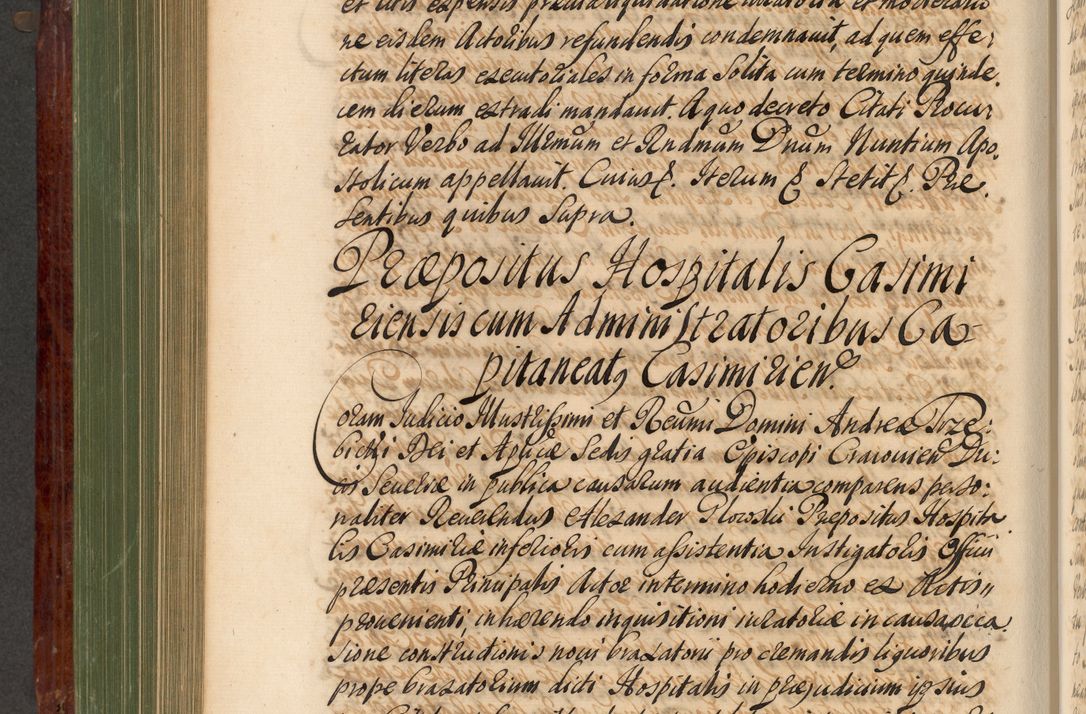 et litis expensis præuia liquidatione iuratoria et moderatio
ne eisdem Actoribus refundendis condemnauit, ad quem effe,
ctum literas executoriales in forma Solita cum termino quinde
cem dierum extradi mandauit. A quo decreto Citati Procu,
rator Verbo ad Illrmum et Rndmum Dnum Nuntium Apo,
stolicum appellauit. Cuius &. Iterum & Stetit &. Præ,
sentibus quibus Supra.
Præpositus Hospitalis Casimi
riensis cum Administratoribus Ca-
pitaneatq Casimirien.
Coram Judicio Illustrissimi et Reumi Domini Andreæ Trze:
bicki Dei et Aplicæ Sedis gratia Episcopi Cracouien Du:
cis Seueriæ in publica causarum audientia comparens perso:
naliter Reuerendus Alexander Plowski Præpositus Hospita
lis Casimiriæ inferioris cum assistentia Instigatoris Officii
præsentis Principalis Actor in termino hodierno ex Actis
prouenienti, inhærendo inquisitioni iuratoriæ in causa occa
sione constructionis noui braxatorii pro cremandis liquoribus
prope braxatorium dicti Hospitalis in præjudicium ipsius